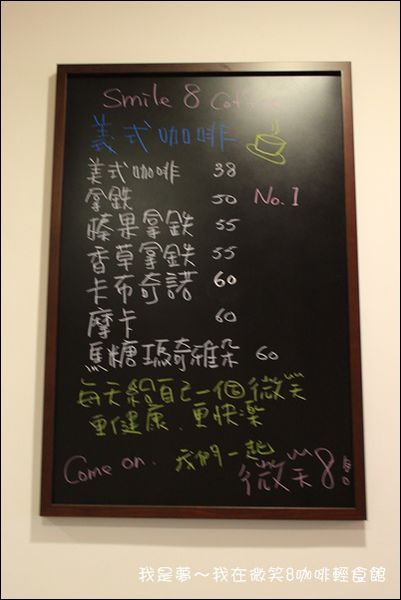 Smile 8 Coffee
義式咖啡
美式咖啡 38
拿鉄 50 No.1
榛果拿鉄 55
香草拿鉄 55
卡布奇諾 60
摩卡 60
焦糖瑪奇雅朵 60
每天給自己一個微笑
更健康、更快樂
Come on. 我們一起
微笑8
我是夢~我在微笑8咖啡輕食館